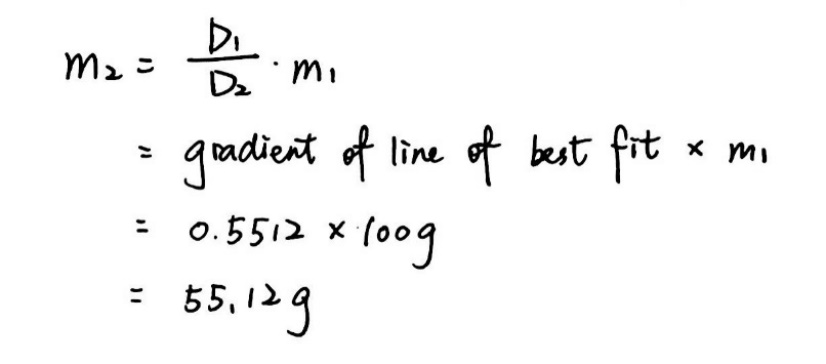 m₂ = D₁/D₂ · m₁
= gradient of line of best fit × m₁
= 0.5512 × 100g
= 55.12g